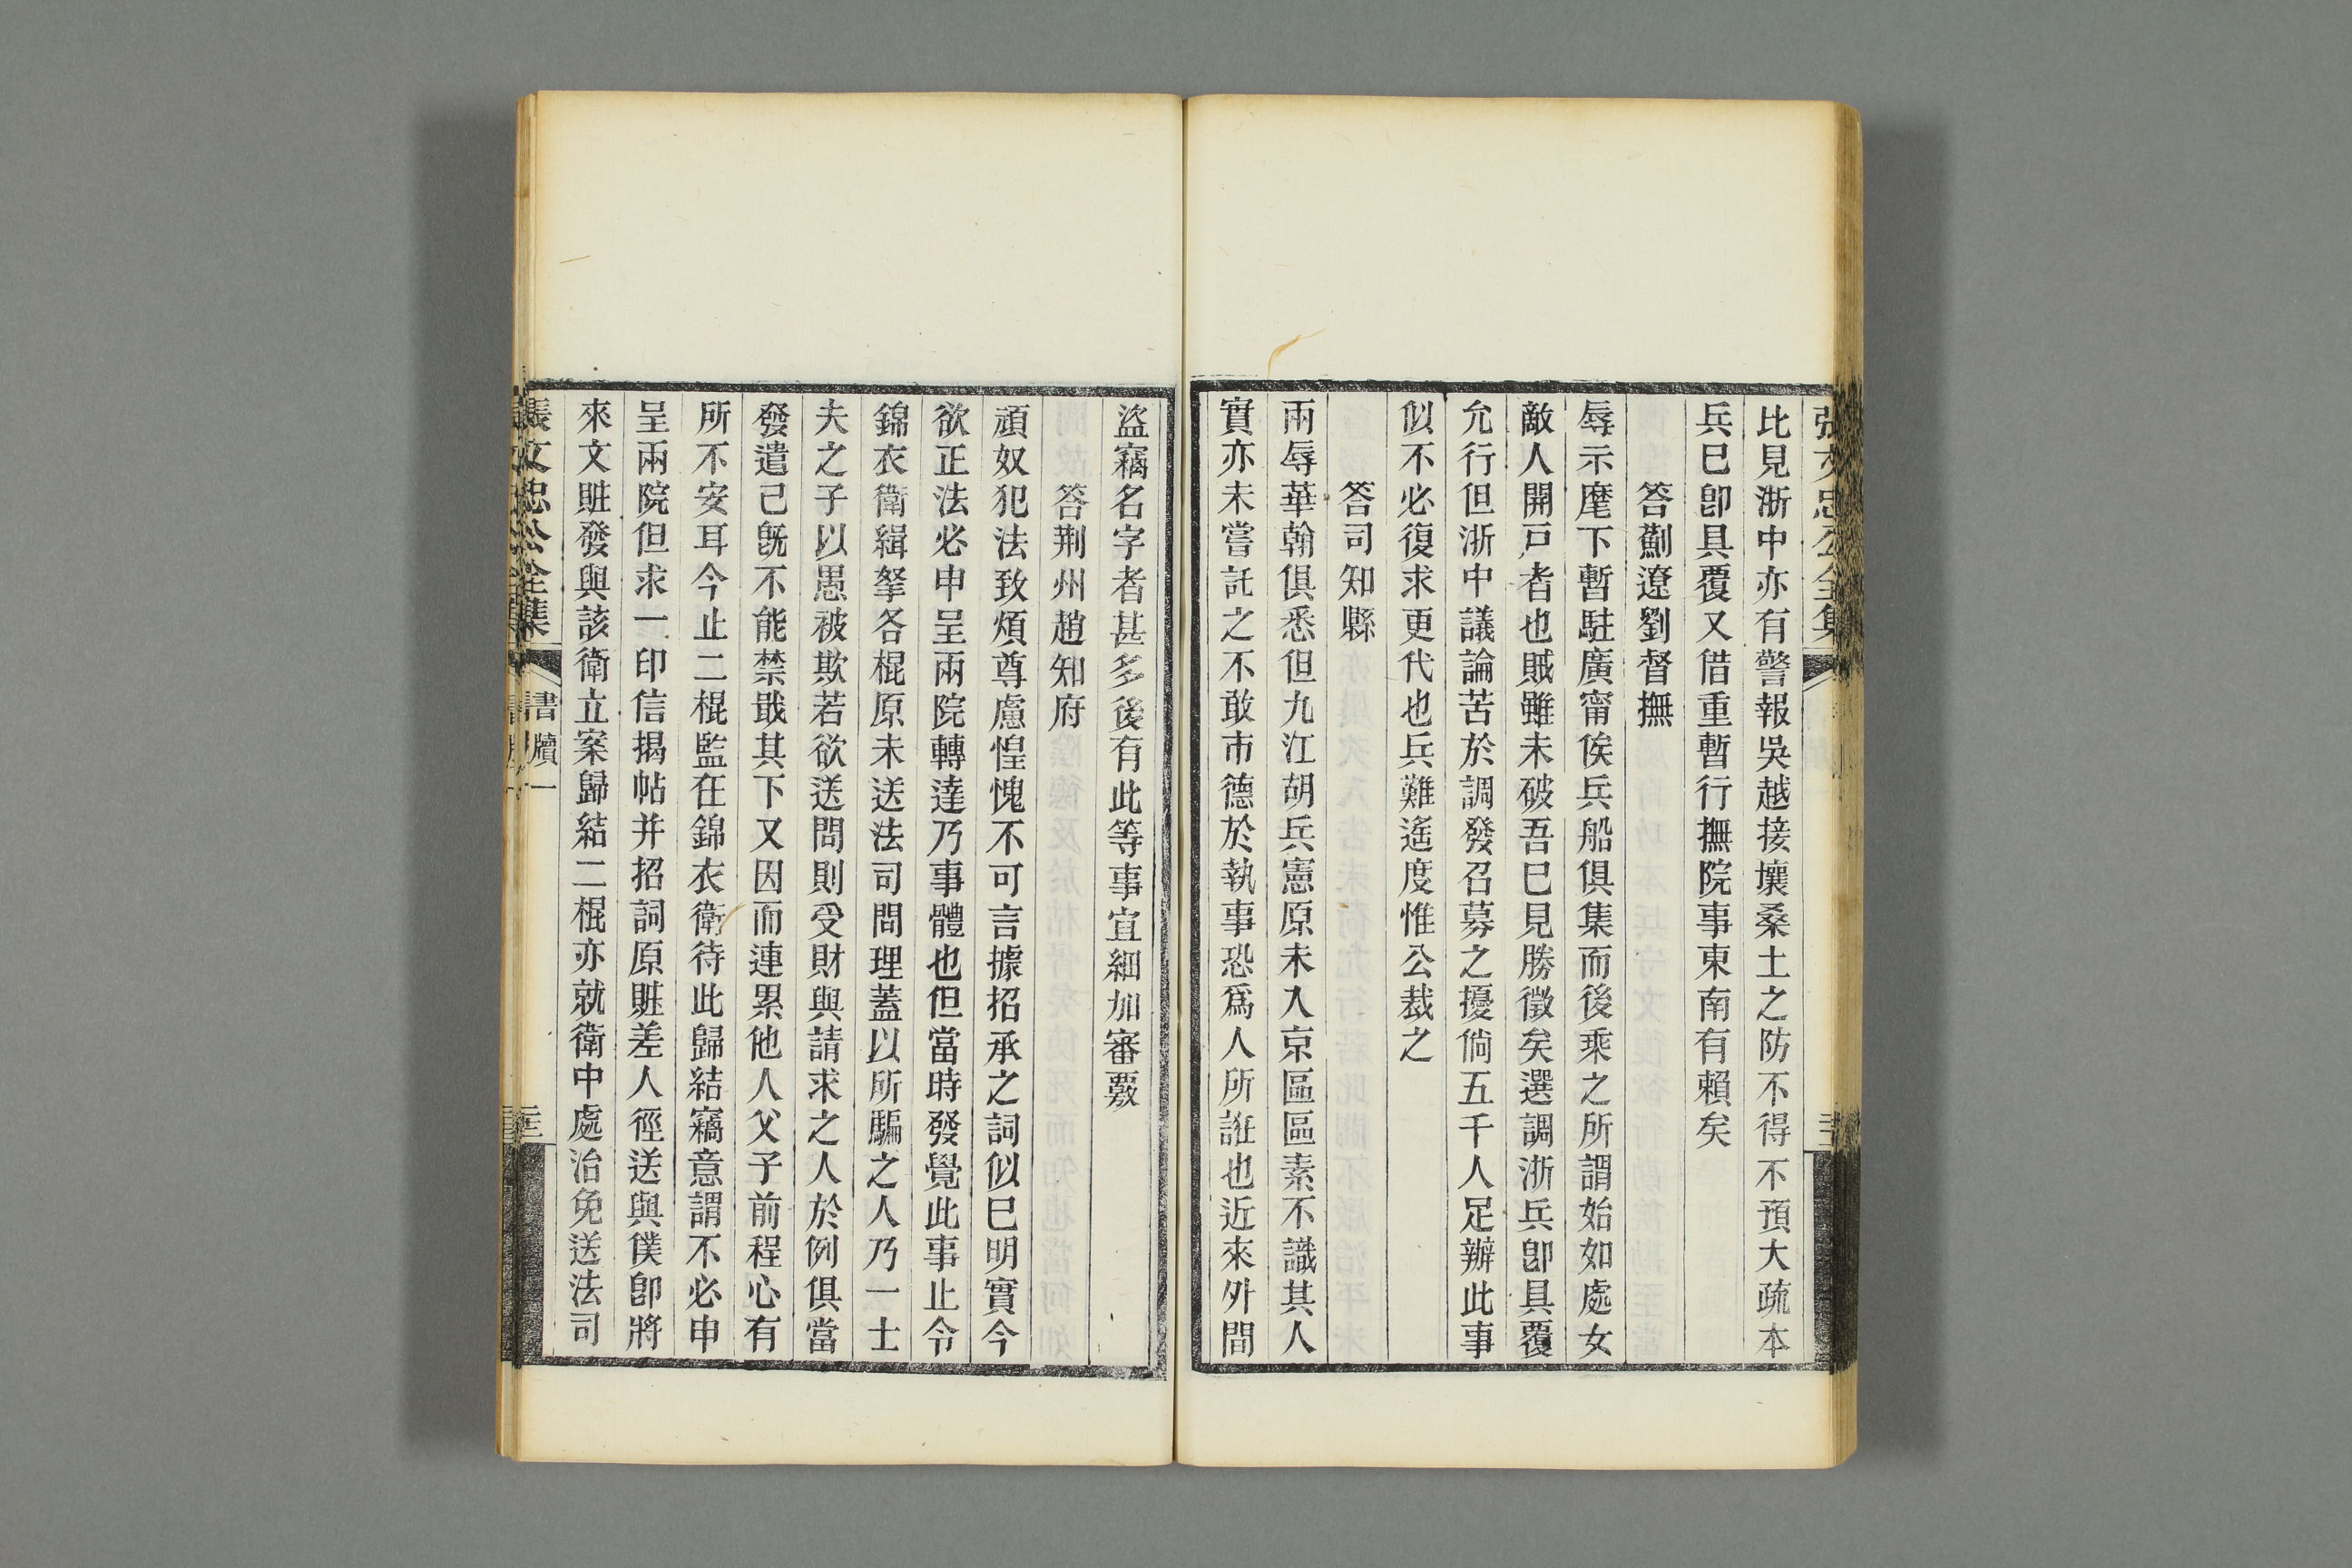 張文忠公全集
比見浙中亦有警報吳越接壤桑土之防不得不預大疏本
兵已卽具覆又借重暫行撫院事東南有賴矣
答薊遼劉督撫
辱示麾下暫駐廣甯俟兵船俱集而後乘之所謂始如處女
敵人開戸者也賊雖未破吾已見勝徵矣選調浙兵卽具覆
允行但浙中議論苦於調發召募之擾倘五千人足辦此事
似不必復求更代也兵難遙度惟公裁之
答司知縣
兩辱華翰俱悉但九江胡兵憲原未入京區區素不識其人
實亦未嘗託之不敢市德於執事恐爲人所誑也近來外間
盜竊名字者甚多後有此等事宜細加審覈
答荆州趙知府
頑奴犯法致煩尊慮惶愧不可言據招承之詞似已明實今
欲正法必申呈兩院轉達乃事體也但當時發覺此事止令
錦衣衛緝拏各棍原未送法司問理蓋以所騙之人乃一士
夫之子以愚被欺若欲送問則受財與請求之人於例俱當
發遣己旣不能禁戢其下又因而連累他人父子前程心有
所不安耳今止二棍監在錦衣衛待此歸結竊意謂不必申
呈兩院但求一印信揭帖并招詞原贓差人徑送與僕卽將
來文贓發與該衛立案歸結二棍亦就衛中處治免送法司
張文忠公全集
書牘一